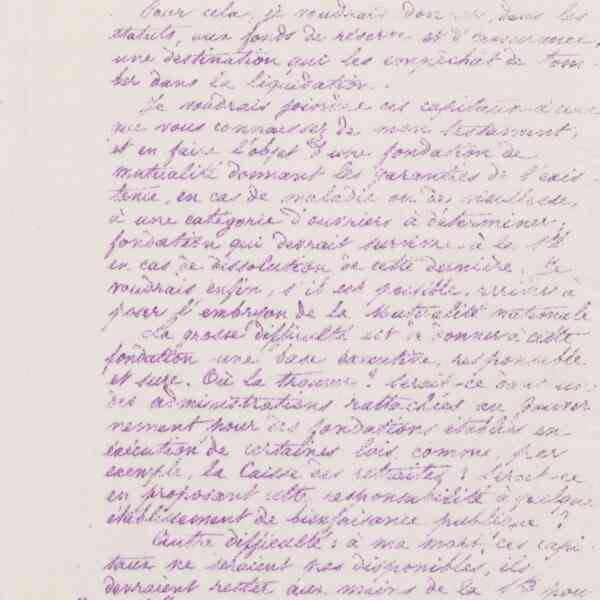 Pour cela, je voudrais donner, dans les
statuts, aux fonds de réserve et d'assurance,
une destination qui les empêchât de tom-
ber dans la liquidation.
Je voudrais joindre ces capitaux à ceux
que vous connaissez de mon testament,
et en faire l'objet d'une fondation de
mutualité donnant les garanties de l'exis-
tence, en cas de maladie ou de vieillesse,
à une catégorie d'ouvriers à déterminer;
fondation qui devrait survivre à la Sté
en cas de dissolution de cette dernière. Je
voudrais enfin, s'il est possible, arriver à
poser l'embryon de la Mutualité nationale
La grosse difficulté est de donner à cette
fondation une base exécutive, responsable
et sûre. Où la trouver? Serait-ce dans une
des administrations rattachées au gouver
nement pour des fondations établies en
exécution de certaines lois, comme, par
exemple, la Caisse des retraites; serait-ce
en proposant cette responsabilité à quelque
établissement de bienfaisance publique?
Autre difficulté: à ma mort, ces capi-
taux ne seraient pas disponibles, ils
devraient rester aux mains de la Sté pour